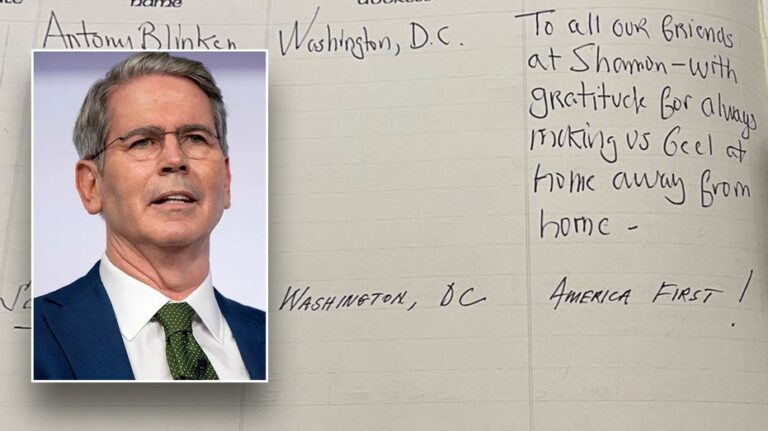 name
address
Antony Blinken Washington, D.C. To all our friends
at Shannon-with
gratitude for always
making us feel at
home away from
home -
WASHINGTON, DC AMERICA FIRST!